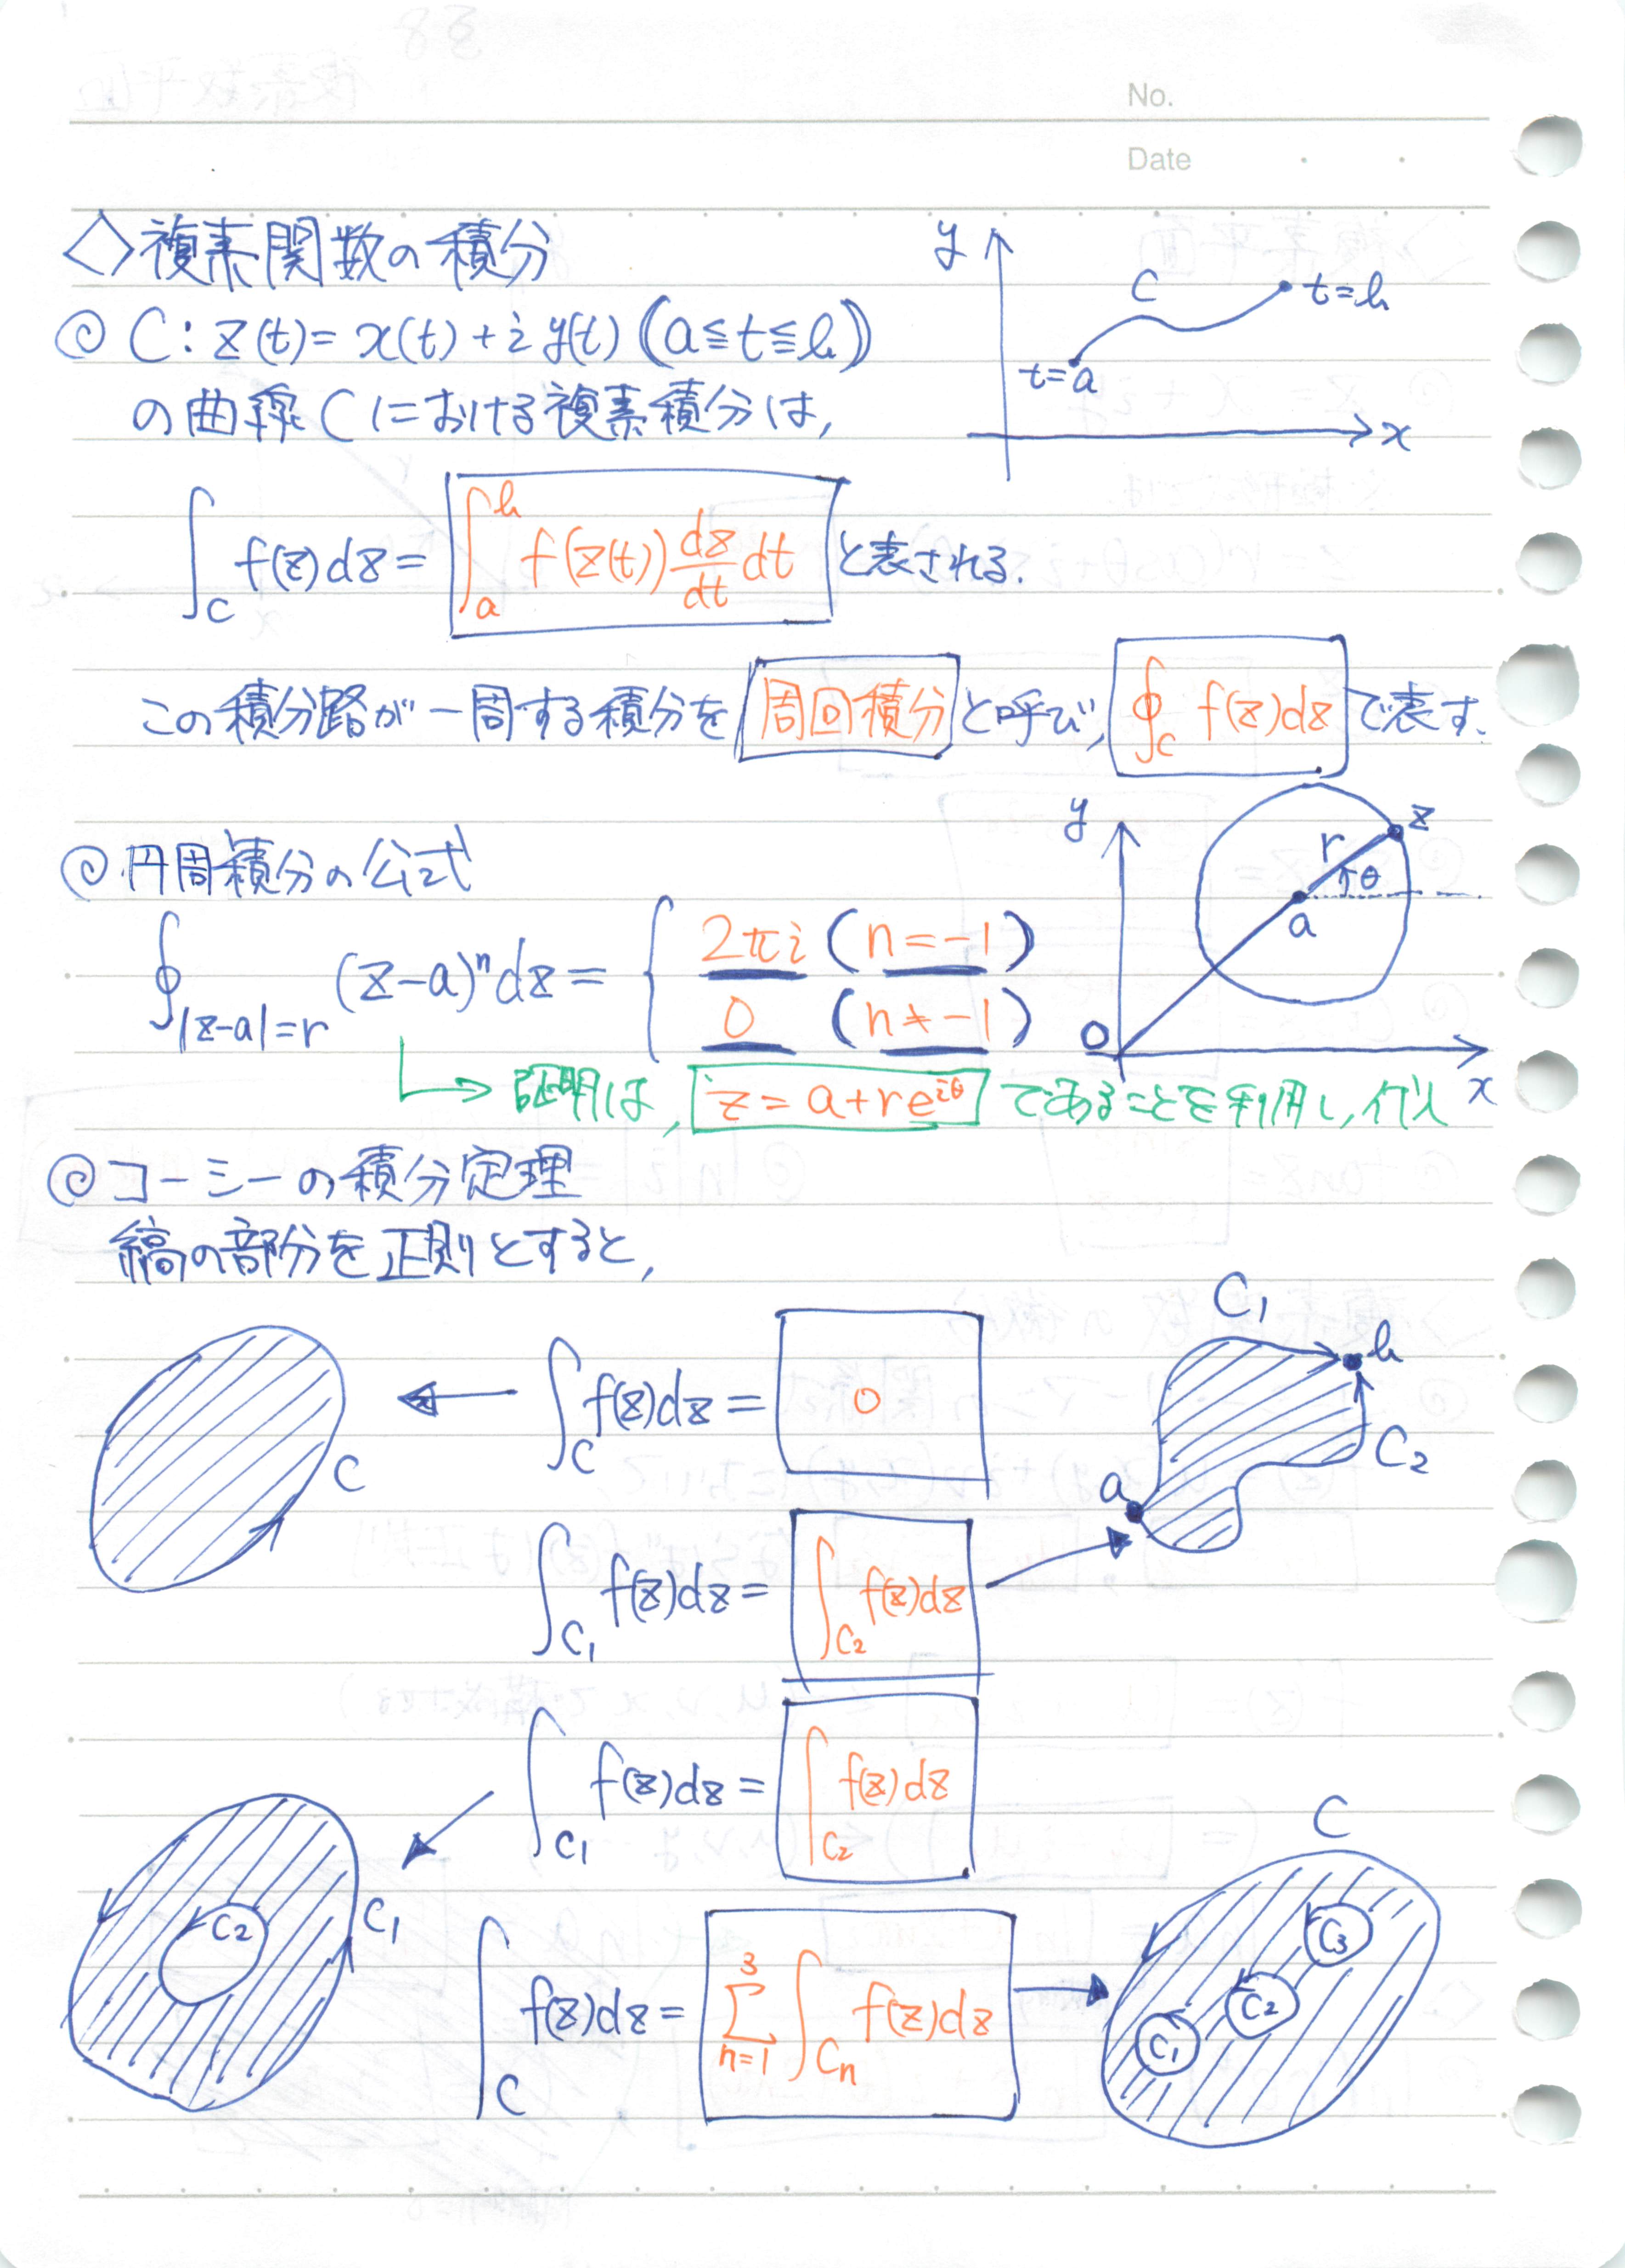 No.
Date
◇複素関数の積分
◎ C: z(t) = x(t) + i y(t) (a ≦ t ≦ b)
の曲線Cにおける複素積分は,
∫_C f(z)dz = ∫_a^b f(z(t)) dz/dt dt と表される.
y
C
t=b
t=a
x
この積分路が一周する積分を 周回積分 と呼び, ∮_C f(z)dz で表す.
◎円周積分の公式
∮_{|z-a|=r} (z-a)^n dz = { 2πi (n=-1)
0 (n≠-1)
y
z
r
θ
a
O
x
↳ 証明は, z = a+re^{iθ} であることを利用し, 代入
◎コーシーの積分定理
縞の部分を正則とすると,
C
← ∫_C f(z)dz = 0
C₁
b
C₂
a
∫_{C₁} f(z)dz = ∫_{C₂} f(z)dz
∫_{C₁} f(z)dz = ∫_{C₂} f(z)dz
C₂
C₁
∫_C f(z)dz = Σ_{n=1}^{3} ∫_{Cn} f(z)dz →
C
C₃
C₂
C₁